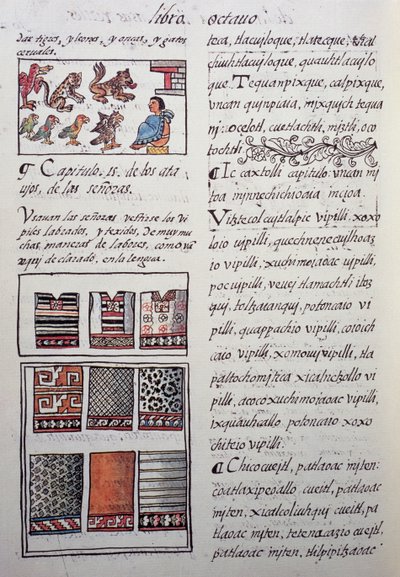 libro octavo
dar tigres, y leones, y onças, y gatos
ceruales.
¶ Capitulo. 15. de los ata
ujos, de las señoras.
Vsauan las señoras vestirse los vi
piles labrados, y texidos. De muy mu
chas maneras de labores, como va
aqui declarado, en la lengua.
teca, tlacujloque, tlatecque,
chiuhtlacujloque, quauhtlacujlo
que. Tequanpixque, calpixque,
vncan quinpiaia, mixquich tequa
nj: ocelotl, cuetlachtli, miztli, oco
tochtli.
¶ Ic caxtolli capitulo: vncan mi
toa injnnechichioaia incioa.
Vitztecol cuitlalpic vipilli. xoxo
loio vipilli, quechnenecujlhoaz
io vipilli, xuchimoiaoac vipilli,
pocvipilli, vevej tlamachtli itoz
qui, telzatanqui, potoncaio vi
pilli, quappachio vipilli, coioich
caio vipilli, xomoiuvipilli, tla
paltochomjtica xicalnetzollo vi
pilli, acocoxuchimoiaoac vipilli,
ixquauhcallo potoncaio xoxo
chiteio vipilli.
¶ Chicocueitl, patlaoac mjten:
coatlaxipeoallo cueitl, patlaoac
mjten, xicalcoliuhqui cueitl, pa
tlaoac mjten, tetenacazio cueitl,
patlaoac mjten, tlilpipitzaoac